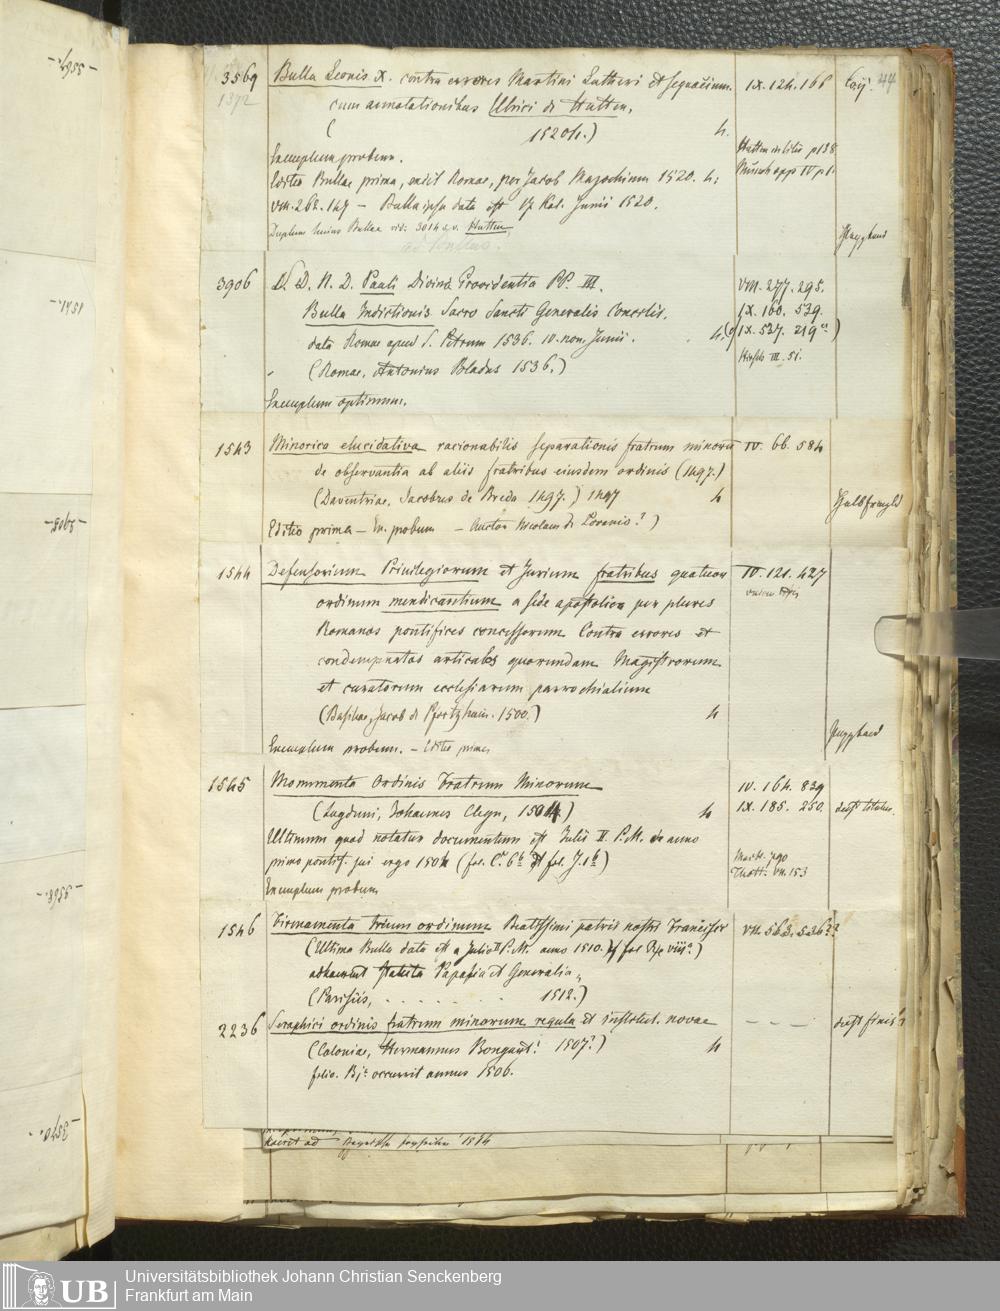 3569 Bulla Leonis X. contra errores Martini Lutheri et sequacium. IX. 124. 166
1372 cum annotationibus Ulrici de Hutten.
( 1520.) 4.
Exemplum probum.
Editio Bullae prima, exiit Romae, per Jacob Mazochium 1520. 4:
VIII. 262. 147 – Bulla ipsa data est 17 Kal. Junii 1520.
Duplum huius Bullae vid: 3014 s.v. Hutten.
44
3906 S. D. N. D. Pauli Divina Providentia PP. III. VIII. 277. 295.
Bulla Indictionis Sacro Sancti Generalis Concilii. IX. 160. 539.
data Romae apud S. Petrum 1536. IV. non. Junii. 4. IX. 527. 219
(Romae, Antonius Bladus 1536.) III. 51.
Exemplum optimum.
1543 Minorica elucidativa racionabilis separationis fratrum minorum IV. 66. 584
de observantia ab aliis fratribus eiusdem ordinis (1497.)
(Daventriae, Jacobus de Breda 1497.) 1497 4
Editio prima – Ex. probum – Auctor Nicolaus de
1544 Defensorium Privilegiorum et Jurium fratribus quatuor IV. 121. 427
ordinum mendicantium a sede apostolica per plures
Romanos pontifices concessorum Contra errores et
condempnatos articulos quorundam Magistrorum
et curatorum ecclesiarum parrochialium
(Basileae, Jacob de Pfortzheim. 1500.) 4
Exemplum probum. – Editio prima
1545 Monumenta Ordinis Fratrum Minorum IV. 164. 839
(Lugduni, Johannes Cleyn, 1504) 4 IX. 185. 250. deest titulus.
Ultimum quod notatur documentum est Julii II P.M. de anno
primo pontif. sui ergo 1504
Exemplum probum VII. 153
1546 Firmamenta trium ordinum Beatissimi patris nostri Francisci VII. 563. 526
(Ultima Bulla data est a Julio II P.M. anno 1510.
adhaerent Statuta Papalia et Generalia
(Parisiis, . . . . . . . 1512.)
2236 Seraphici ordinis fratrum minorum regula et institut. novae – – – deest finis
(Coloniae, Hermannus Bongart! 1507?) 4
folio. B occurrit annus 1506.
– 3567. –
1541. –
– 3905. –
– 3568. –
– 3570. –
Universitätsbibliothek Johann Christian Senckenberg
UB Frankfurt am Main